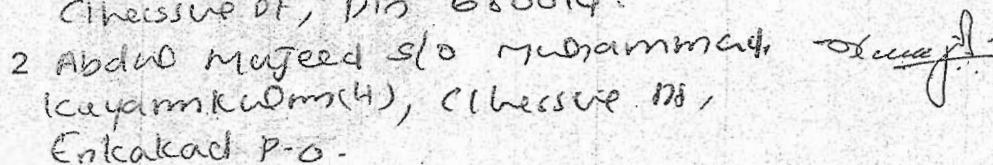 Clhecssue Dt, Pin 680014.
2 Abdul Majeed S/o Muhammad.
Kayamkulam(H), Clhecssue Dt,
Enkakad P.O.